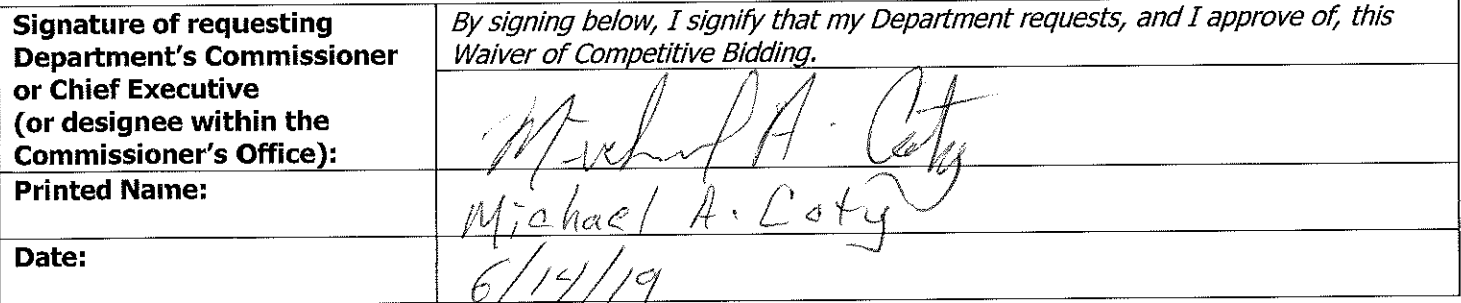 Signature of requesting
Department's Commissioner
or Chief Executive
(or designee within the
Commissioner's Office):
By signing below, I signify that my Department requests, and I approve of, this
Waiver of Competitive Bidding.
Michael A. Coty
Printed Name:
Michael A. Coty
Date:
6/14/19